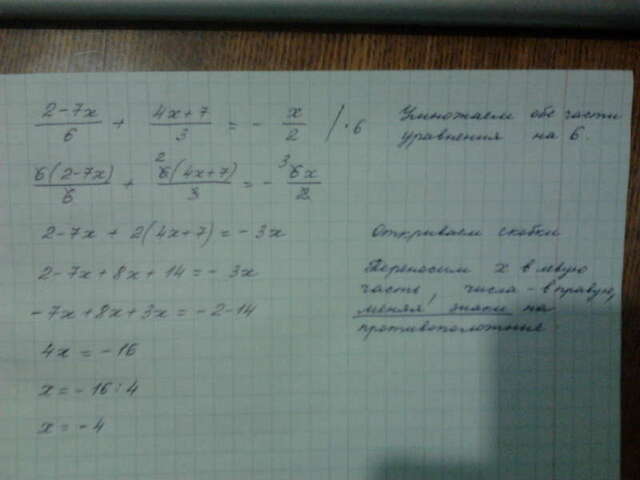 (2-7x)/6 + (4x+7)/3 = - x/2 /·6 Умножаем обе части
уравнения на 6.
6(2-7x)/6 + 2 6(4x+7)/3 = - 3 6x/2
2-7x + 2(4x+7) = - 3x Открываем скобки
2-7x+8x+14 = - 3x Переносим x в левую
часть, числа - в правую,
-7x+8x+3x = -2-14 меняя знаки на
противоположные
4x = -16
x = -16:4
x = -4